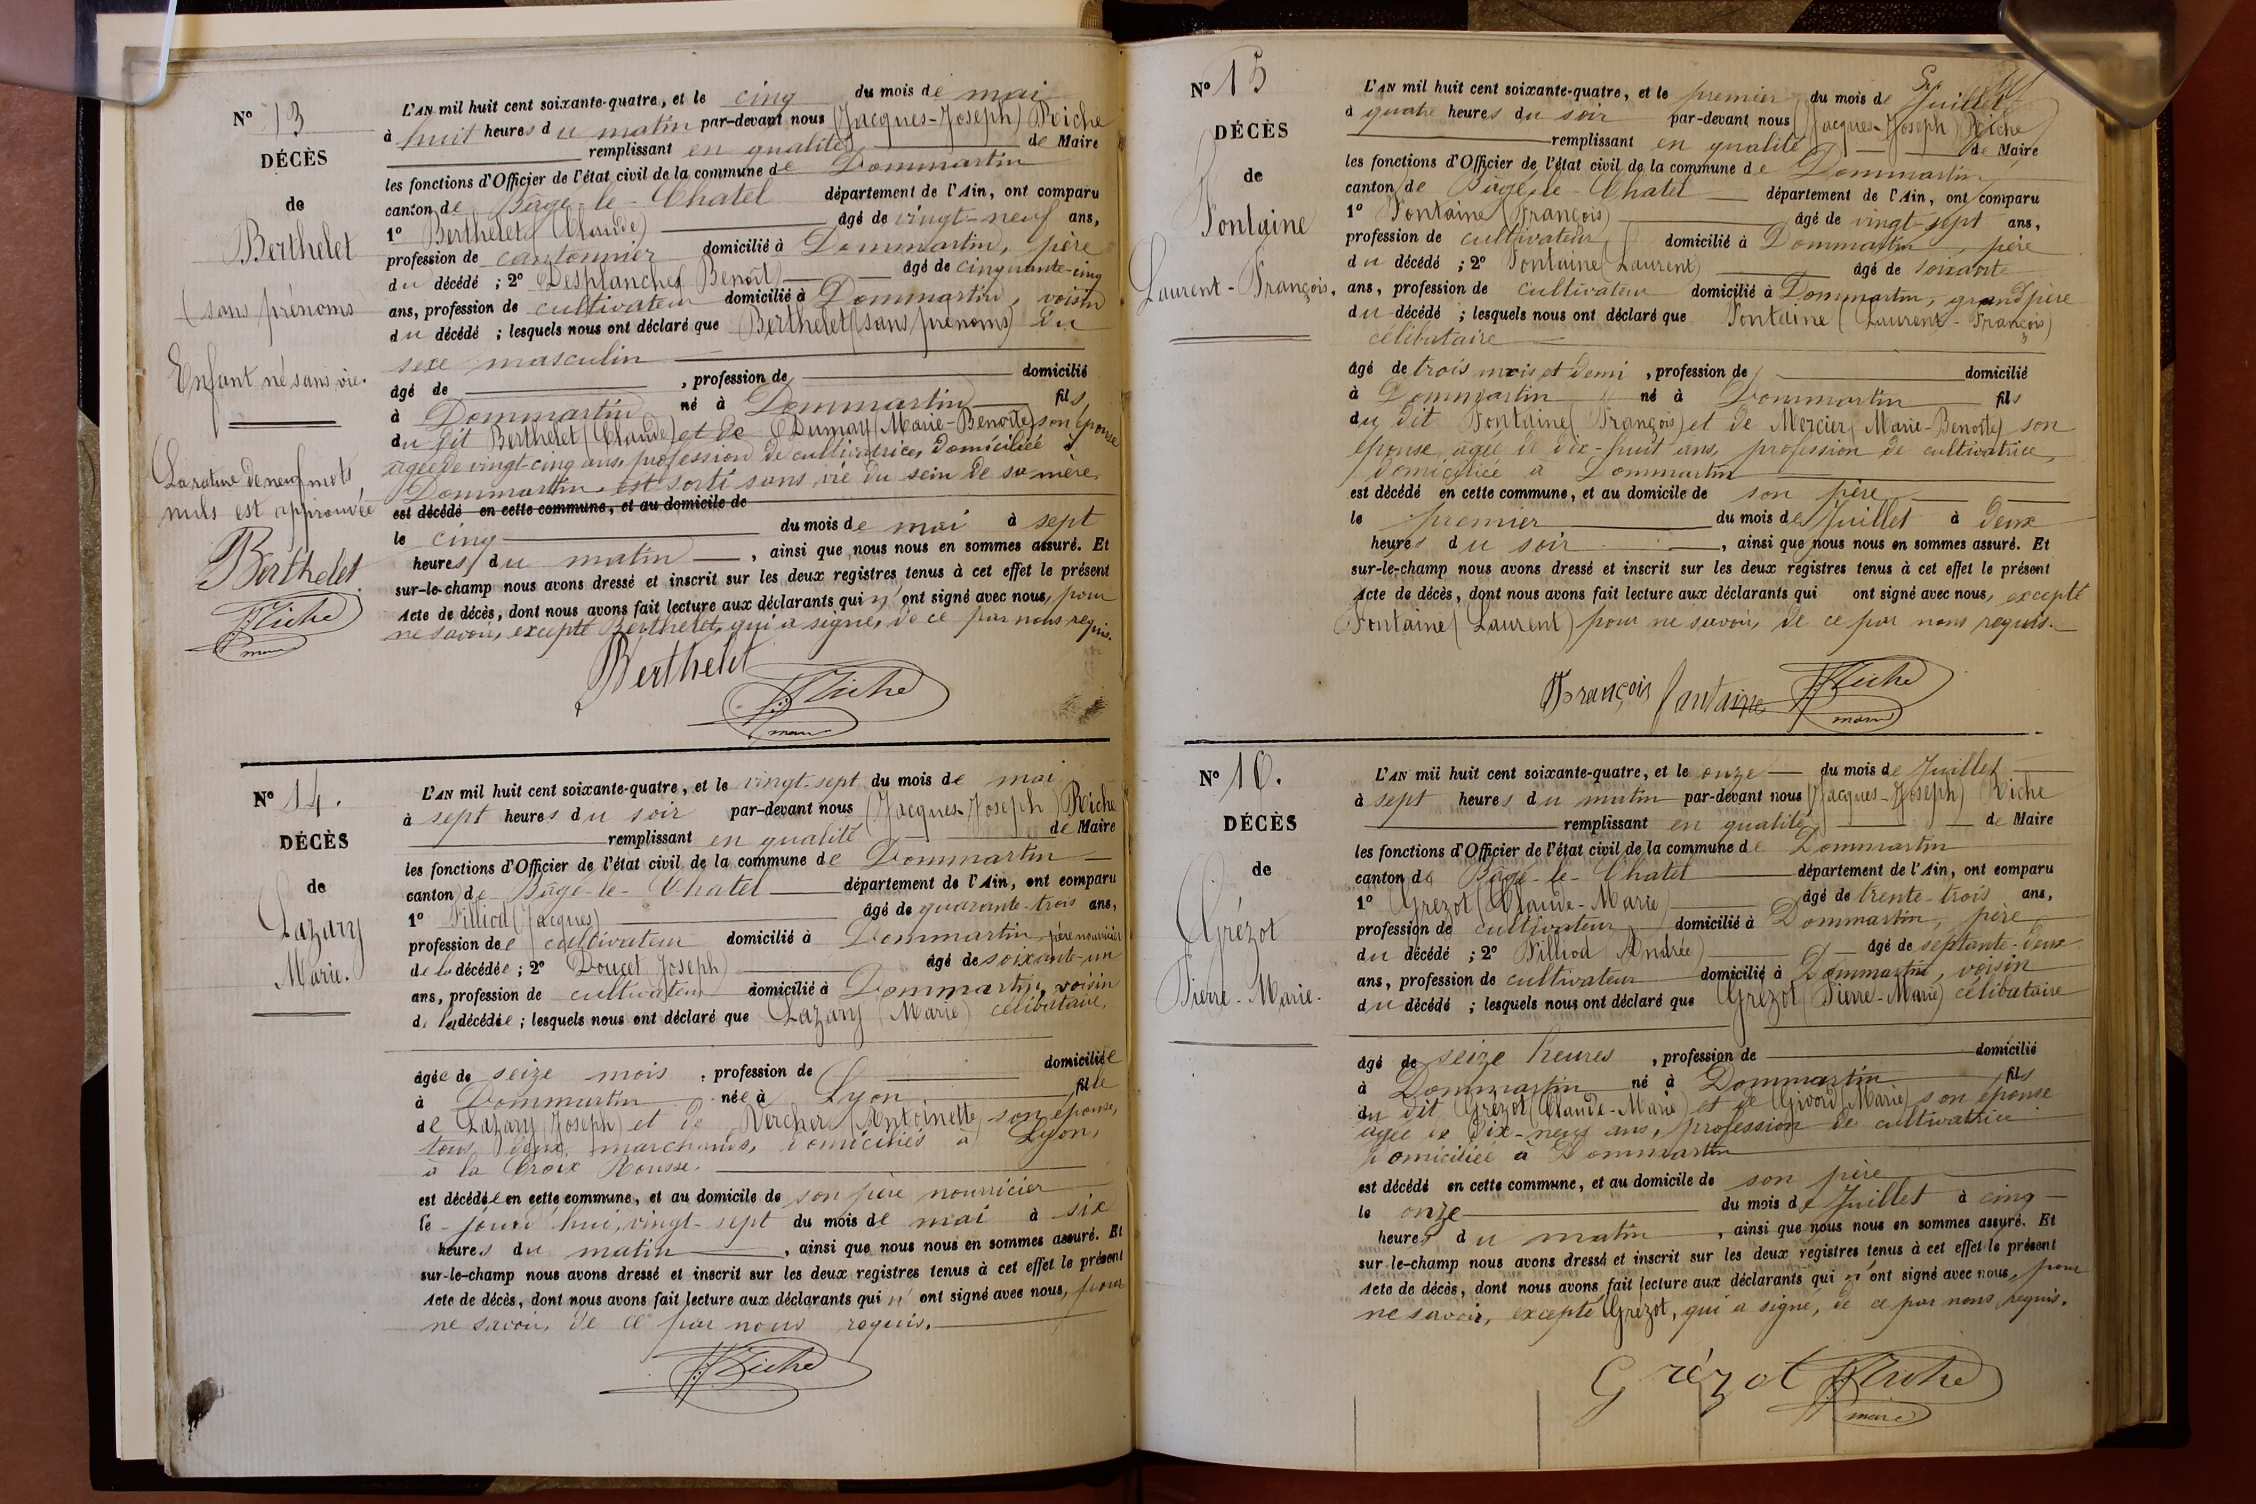 N° 13
DÉCÈS
de
Berthelet
(sans prénoms
Enfant né sans vie.
La rature de neuf mots
nuls est approuvée
Berthelet
Riche
maire
L'AN mil huit cent soixante-quatre, et le cinq du mois de mai
à huit heures du matin par-devant nous (Jacques-Joseph) Riche
remplissant en qualité de Maire
les fonctions d'Officier de l'état civil de la commune de Dommartin
canton de Bâgé-le-Chatel département de l'Ain, ont comparu
1° Berthelet (Claude) âgé de vingt-neuf ans,
profession de cantonnier domicilié à Dommartin, père
du décédé ; 2° Desplanches Benoît) âgé de cinquante-cinq
ans, profession de cultivateur domicilié à Dommartin, voisin
du décédé ; lesquels nous ont déclaré que Berthelet (sans prénoms) du
sexe masculin
âgé de , profession de domicilié
à Dommartin né à Dommartin fils
du dit Berthelet (Claude) et de Dumay (Marie-Benoîte) son épouse
âgée de vingt-cinq ans, profession de cultivatrice, domiciliée à
Dommartin, est sorti sans vie du sein de sa mère,
est décédé en cette commune, et au domicile de
le cinq du mois de mai à sept
heures du matin , ainsi que nous nous en sommes assuré. Et
sur-le-champ nous avons dressé et inscrit sur les deux registres tenus à cet effet le présent
Acte de décès, dont nous avons fait lecture aux déclarants qui n'ont signé avec nous, pour
ne savoir, excepté Berthelet, qui a signé, de ce par nous requis.
Berthelet
Riche
maire
N° 14.
DÉCÈS
de
Lazary
Marie.
L'AN mil huit cent soixante-quatre, et le vingt-sept du mois de mai
à sept heures du soir par-devant nous (Jacques-Joseph) Riche
remplissant en qualité de Maire
les fonctions d'Officier de l'état civil de la commune de Dommartin
canton de Bâgé-le-Chatel département de l'Ain, ont comparu
1° Filliod (Jacques) âgé de quarante-trois ans,
profession de cultivateur domicilié à Dommartin, père nourricier
de la décédée ; 2° Doucet Joseph) âgé de soixante-un
ans, profession de cultivateur domicilié à Dommartin, voisin
de la décédée ; lesquels nous ont déclaré que Lazary (Marie) célibataire,
âgée de seize mois , profession de domiciliée
à Dommartin née à Lyon fille
de Lazary (Joseph) et de Vercher (Antoinette) son épouse,
tous deux marchands, domiciliés à Lyon,
à la Croix Rousse.
est décédée en cette commune, et au domicile de son père nourricier
le jourd'hui, vingt-sept du mois de mai à six
heures du matin , ainsi que nous nous en sommes assuré. Et
sur-le-champ nous avons dressé et inscrit sur les deux registres tenus à cet effet le présent
Acte de décès, dont nous avons fait lecture aux déclarants qui n'ont signé avec nous, pour
ne savoir, de ce par nous requis.
Riche
N° 15
DÉCÈS
de
Fontaine
Laurent-François.
L'AN mil huit cent soixante-quatre, et le premier du mois de Juillet
à quatre heures du soir par-devant nous (Jacques-Joseph) Riche
remplissant en qualité de Maire
les fonctions d'Officier de l'état civil de la commune de Dommartin
canton de Bâgé-le-Chatel département de l'Ain, ont comparu
1° Fontaine (François) âgé de vingt-sept ans,
profession de cultivateur domicilié à Dommartin, père
du décédé ; 2° Fontaine (Laurent) âgé de soixante
ans, profession de cultivateur domicilié à Dommartin, grand père
du décédé ; lesquels nous ont déclaré que Fontaine (Laurent-François)
célibataire
âgé de trois mois et demi , profession de domicilié
à Dommartin né à Dommartin fils
du dit Fontaine (François) et de Mercier (Marie-Benoîte) son
épouse, âgée de dix-huit ans, profession de cultivatrice,
domiciliée à Dommartin
est décédé en cette commune, et au domicile de son père
le premier du mois de Juillet à deux
heures du soir , ainsi que nous nous en sommes assuré. Et
sur-le-champ nous avons dressé et inscrit sur les deux registres tenus à cet effet le présent
Acte de décès, dont nous avons fait lecture aux déclarants qui ont signé avec nous, excepté
Fontaine (Laurent) pour ne savoir, de ce par nous requis.
François fontaine
Riche
maire
N° 16.
DÉCÈS
de
Grézot
Pierre-Marie.
L'AN mil huit cent soixante-quatre, et le onze du mois de Juillet
à sept heures du matin par-devant nous (Jacques-Joseph) Riche
remplissant en qualité de Maire
les fonctions d'Officier de l'état civil de la commune de Dommartin
canton de Bâgé-le-Chatel département de l'Ain, ont comparu
1° Grézot (Claude-Marie) âgé de trente-trois ans,
profession de cultivateur domicilié à Dommartin, père
du décédé ; 2° Filliod Andrée) âgé de septante-deux
ans, profession de cultivateur domicilié à Dommartin, voisin
du décédé ; lesquels nous ont déclaré que Grézot (Pierre-Marie) célibataire
âgé de seize heures , profession de domicilié
à Dommartin né à Dommartin fils
du dit Grézot (Claude-Marie) et de Givord (Marie) son épouse
âgée de dix-neuf ans, profession de cultivatrice
domiciliée à Dommartin
est décédé en cette commune, et au domicile de son père
le onze du mois de Juillet à cinq
heures du matin , ainsi que nous nous en sommes assuré. Et
sur-le-champ nous avons dressé et inscrit sur les deux registres tenus à cet effet le présent
Acte de décès, dont nous avons fait lecture aux déclarants qui n'ont signé avec nous, pour
ne savoir, excepté Grézot, qui a signé, de ce par nous requis.
Grézot
Riche
maire